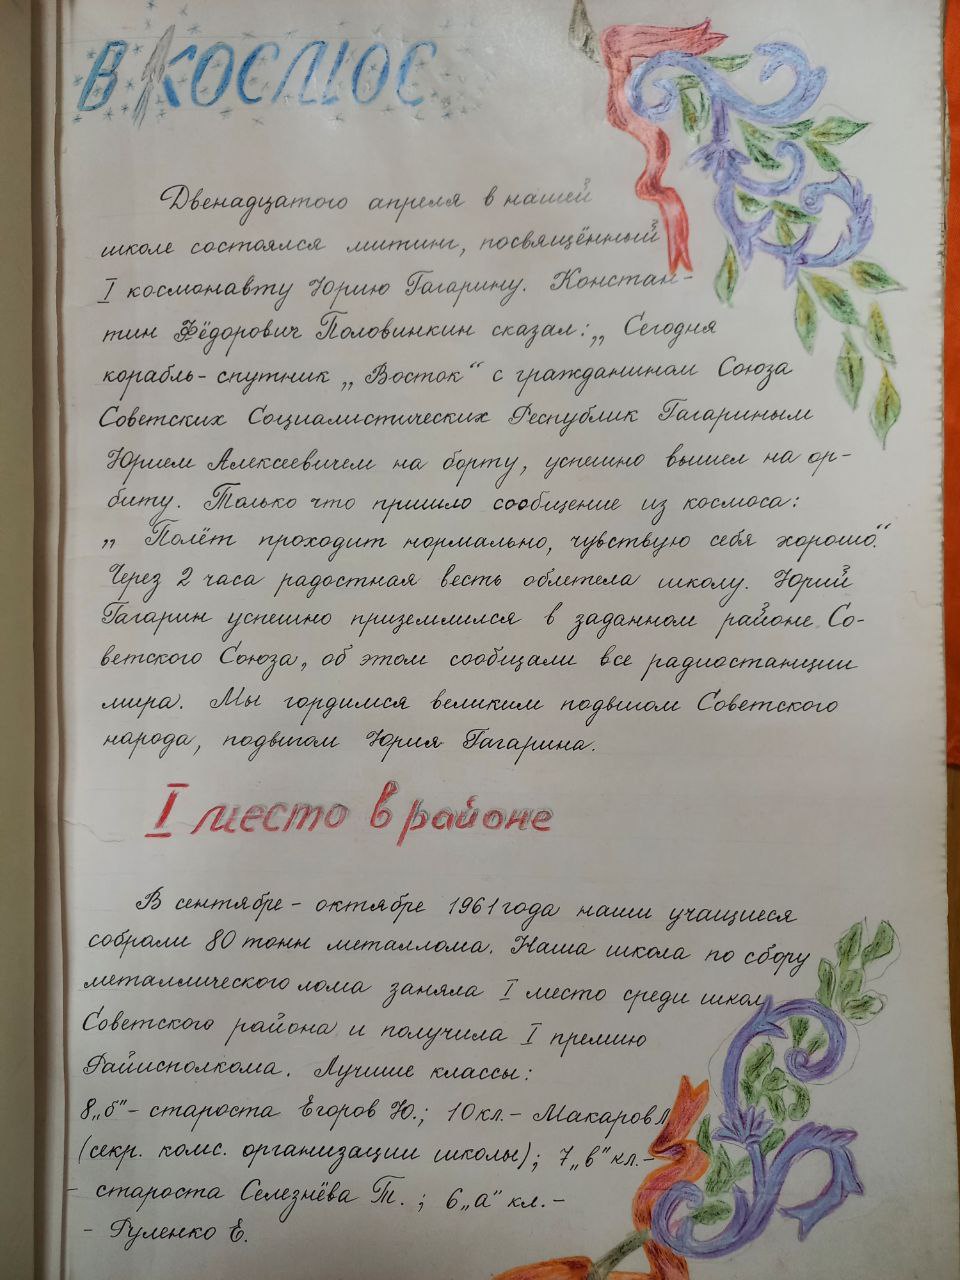 В КОСМОС
Двенадцатого апреля в нашей
школе состоялся митинг, посвящённый
I космонавту Юрию Гагарину. Констан-
тин Фёдорович Половинкин сказал: „Сегодня
корабль-спутник „Восток“ с гражданином Союза
Советских Социалистических Республик Гагариным
Юрием Алексеевичем на борту, успешно вышел на ор-
биту. Только что пришло сообщение из космоса:
„Полёт проходит нормально, чувствую себя хорошо“.
Через 2 часа радостная весть облетела школу. Юрий
Гагарин успешно приземлился в заданном районе Со-
ветского Союза, об этом сообщали все радиостанции
мира. Мы гордимся великим подвигом Советского
народа, подвигом Юрия Гагарина.
I место в районе
В сентябре - октябре 1961 года наши учащиеся
собрали 80 тонн металлома. Наша школа по сбору
металлического лома заняла I место среди школ
Советского района и получила I премию
Райисполкома. Лучшие классы:
8„б“ - староста Егоров Ю.; 10 кл. - Макаров Л
(секр. комс. организации школы); 7„в“ кл. -
- староста Селезнёва Т.; 6„а“ кл. -
- Руленко Е.